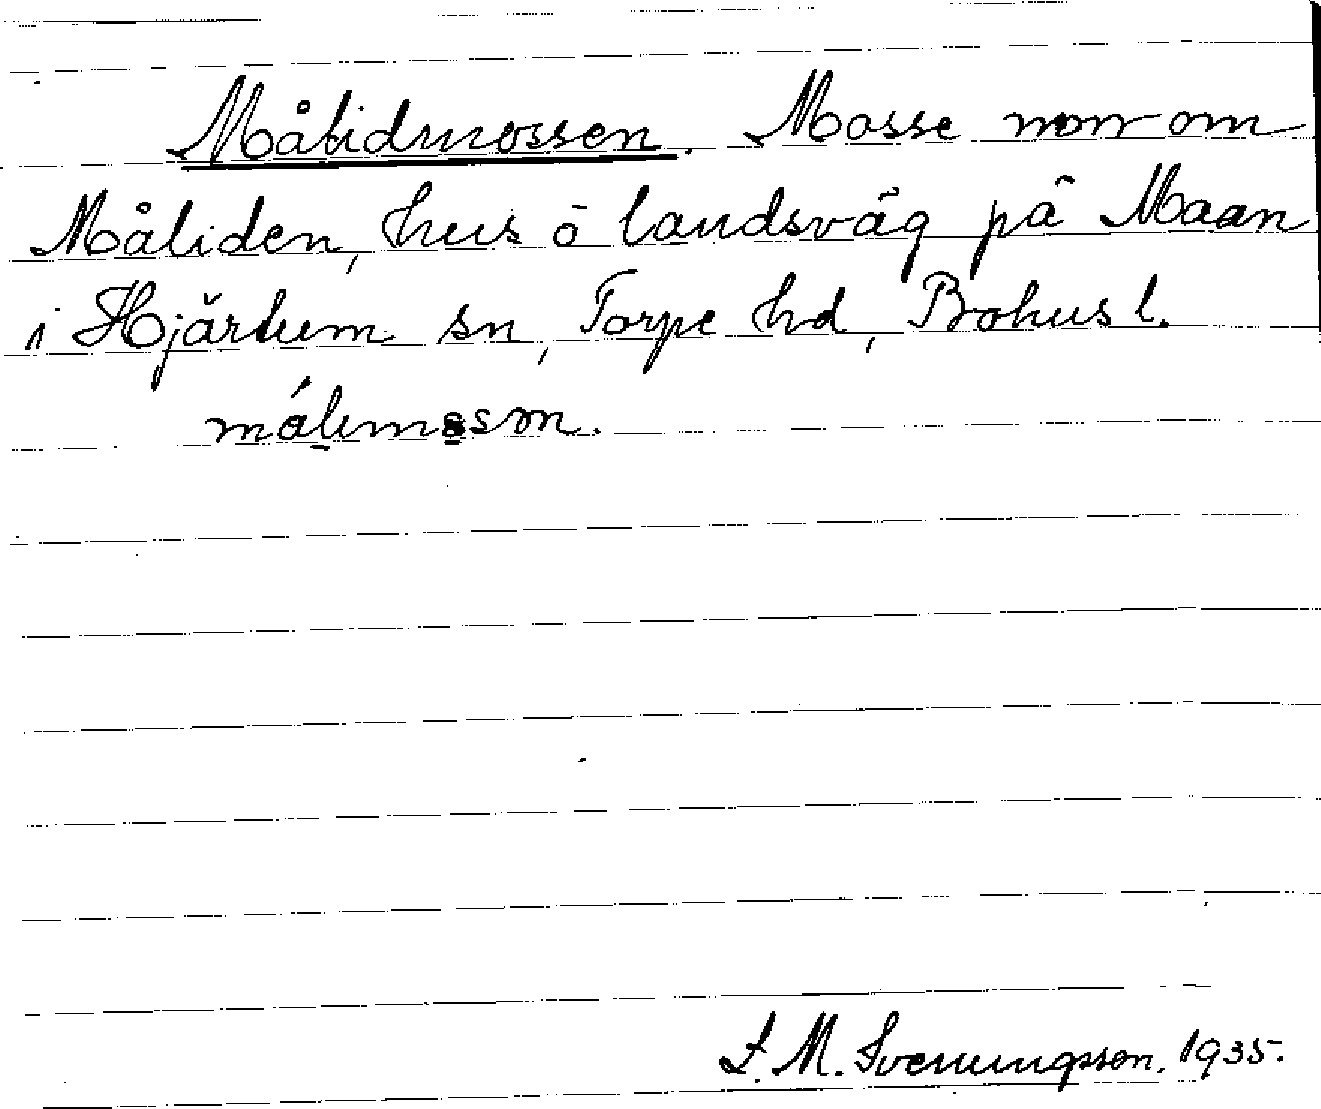 Målidmossen. Mosse norr om
Måliden, hus ö landsväg på Maan
i Hjärtum sn, Torpe hd, Bohusl.
målimossm.
S. M. Svenungsson. 1935.